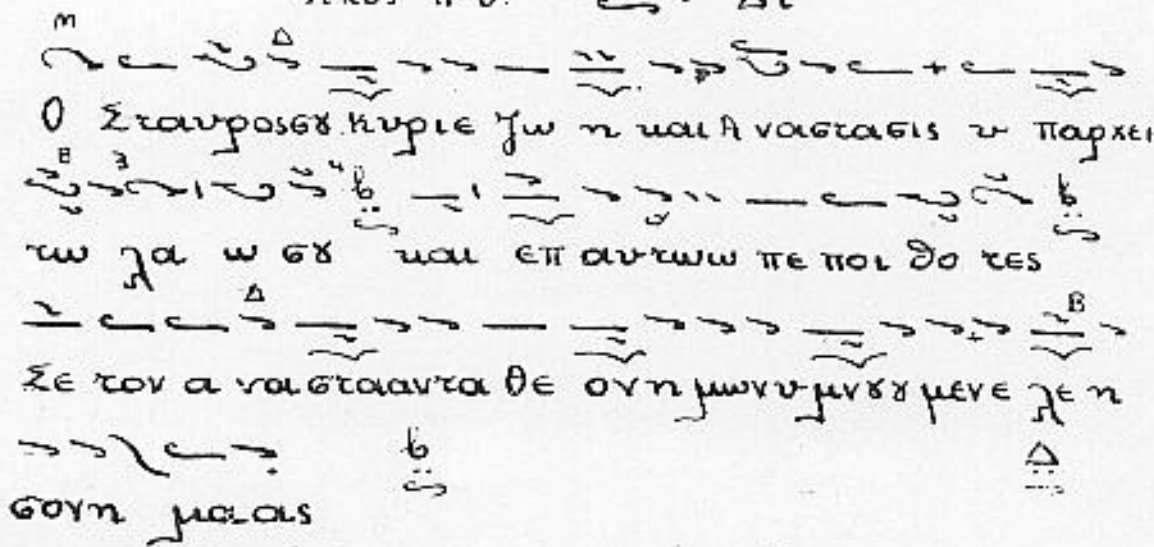 Ο Σταυροσσȣ κυριε ζω η και Α ναστασις υ παρχει
τω λα ω σȣ και επ αυτωω πε ποι θο τες
Σε τον α ναστααντα θε ονημωνυμνȣȣμενε λε η
σονη μα-ας